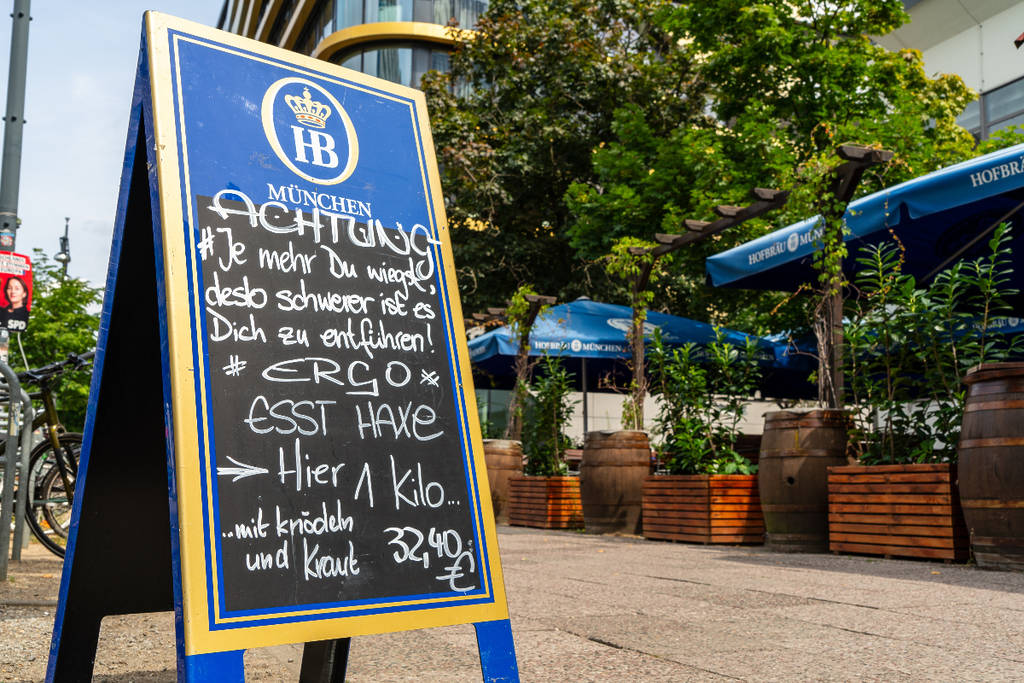 HB
MÜNCHEN
ACHTUNG
#Je mehr Du wiegst,
desto schwerer ist es
Dich zu entführen!
# ERGO *
ESST HAXE
→ Hier 1 Kilo...
...mit knödeln
und Kraut 32,40 €
SPD
HOFBRÄU MÜNCHEN
HOFBRÄU MÜN
HOFBRÄ